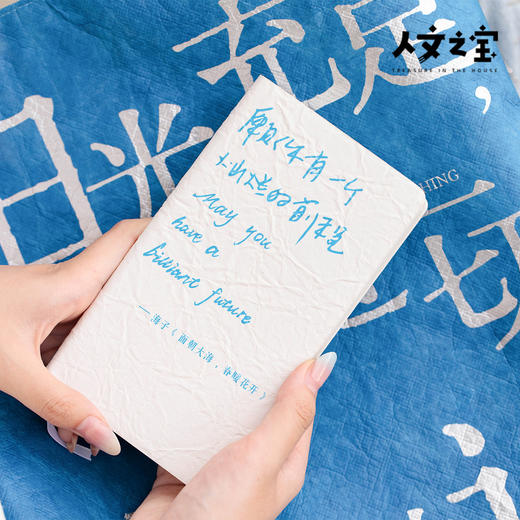 人文之宝
TREASURE IN THE HOUSE
充足，
日光
HING
愿你有一个
灿烂的前程
May you
have a
brilliant future
——海子《面朝大海，春暖花开》